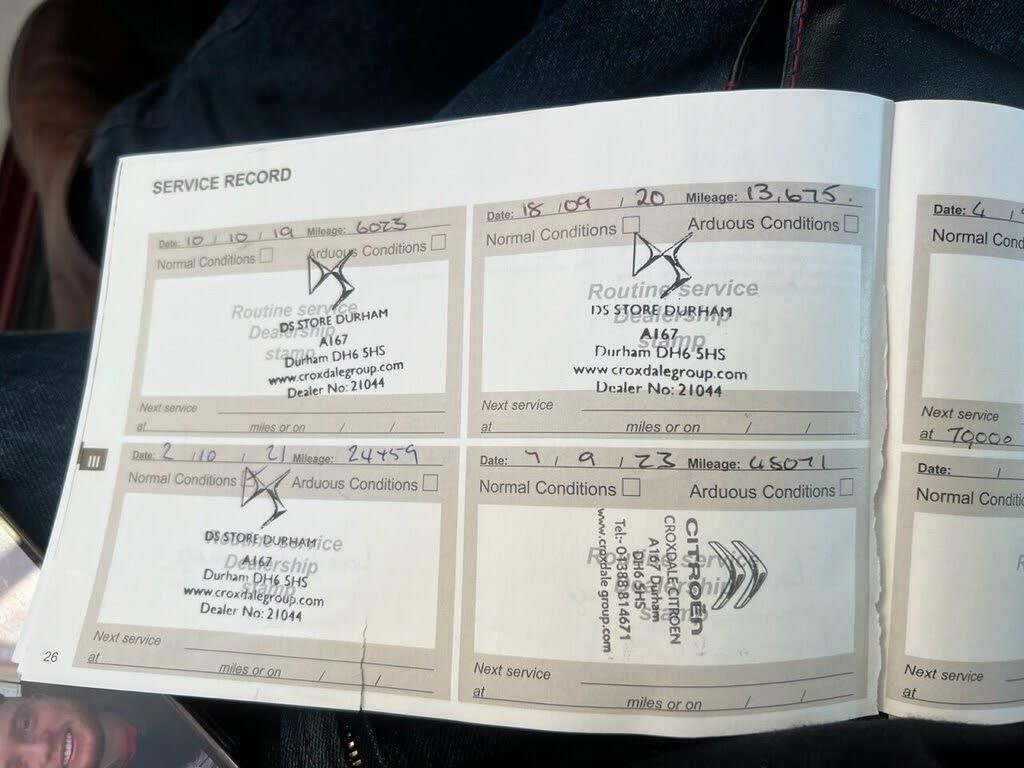 SERVICE RECORD
Date: 10 / 10 / 19 Mileage: 6023
Normal Conditions Arduous Conditions
Routine service
Dealership
stamp
DS STORE DURHAM
A167
Durham DH6 5HS
www.croxdalegroup.com
Dealer No: 21044
Next service
at miles or on / /
Date: 18 / 09 / 20 Mileage: 13,675.
Normal Conditions Arduous Conditions
Routine service
Dealership
stamp
DS STORE DURHAM
A167
Durham DH6 5HS
www.croxdalegroup.com
Dealer No: 21044
Next service
at miles or on / /
III
Date: 2 / 10 / 21 Mileage: 24459
Normal Conditions Arduous Conditions
Routine service
Dealership
stamp
DS STORE DURHAM
A167
Durham DH6 5HS
www.croxdalegroup.com
Dealer No: 21044
Next service
at miles or on / /
26
Date: 7 / 9 / 23 Mileage: 45071
Normal Conditions Arduous Conditions
Routine service
Dealership
stamp
CITROËN
CROXDALE CITROEN
A167 Durham
DH6 5HS
Tel:- 01388 814671
www.croxdale group.com
Next service
at miles or on / /
Date: 4 /
Normal Cond
Next service
at 70000
Date: /
Normal Conditi
Next service
at